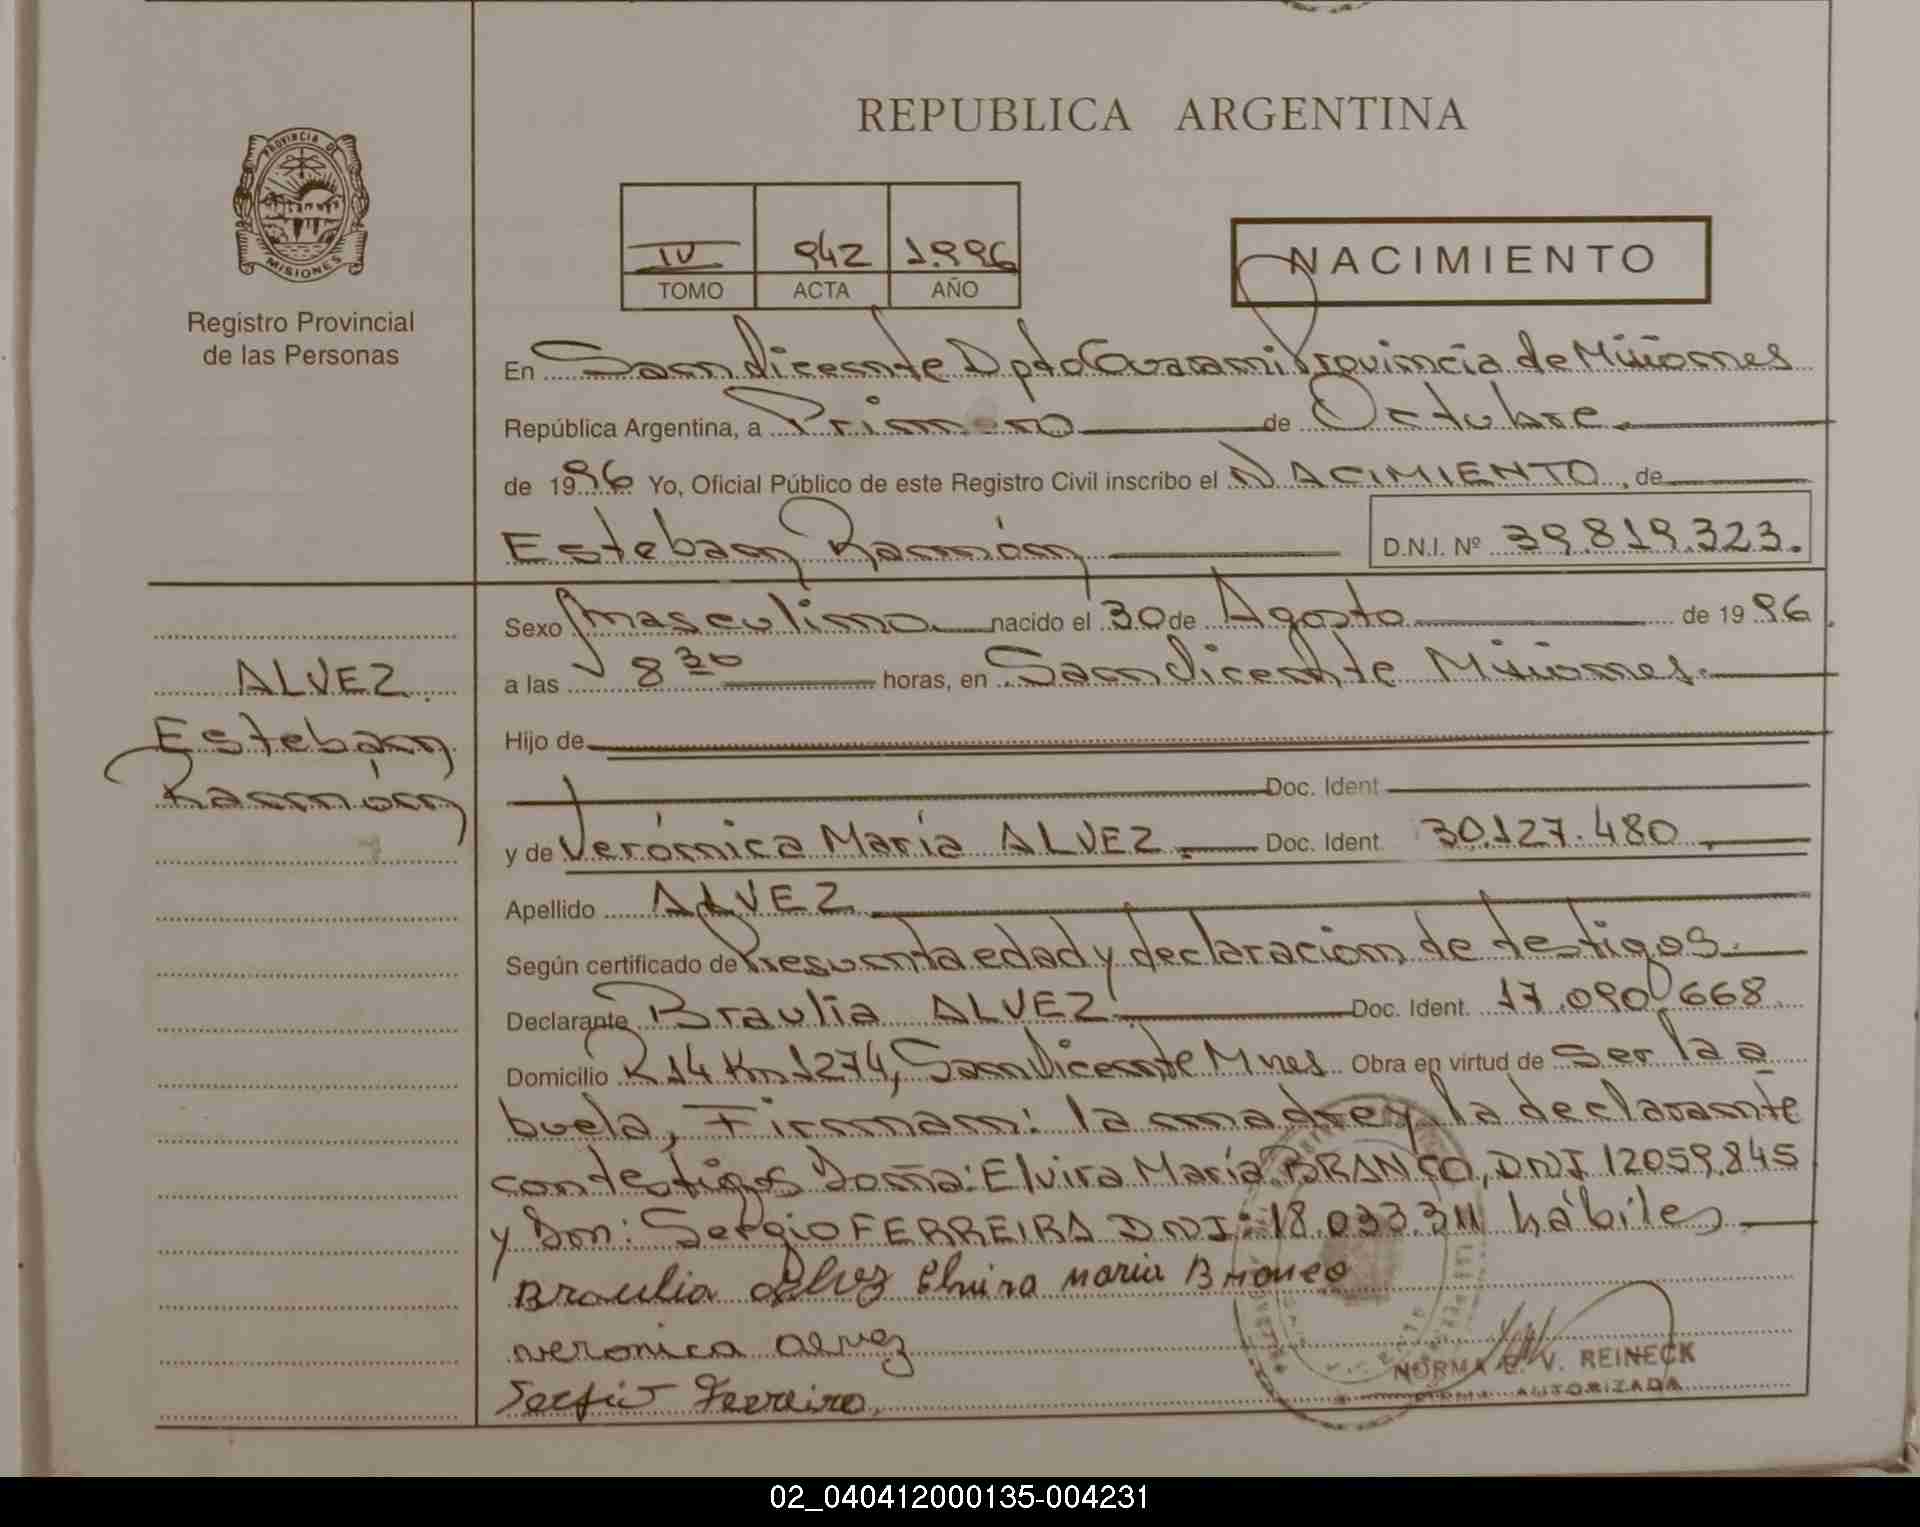 REPUBLICA ARGENTINA
PROVINCIA DE
MISIONES
Registro Provincial
de las Personas
IV 942 1996
TOMO ACTA AÑO
NACIMIENTO
En San Vicente Dpto Guarani Provincia de Misiones
República Argentina, a Primero de Octubre
de 1996 Yo, Oficial Público de este Registro Civil inscribo el NACIMIENTO, de
Esteban Ramón D.N.I. Nº 39.819.323.
Sexo masculino nacido el 30 de Agosto de 1996.
a las 8 30 horas, en San Vicente Misiones.
ALVEZ
Esteban
Ramón
Hijo de
Doc. Ident
y de Verónica María ALVEZ. Doc. Ident. 30.127.480
Apellido ALVEZ
Según certificado de Presunta edad y declaración de testigos.
Declarante Braulia ALVEZ. Doc. Ident. 17.090.668
Domicilio R 14 Km 1274, San Vicente Mnes Obra en virtud de ser la a
buela, Firman: la madre y la declarante
con testigos Doña: Elvira María BRANCO, DNI 12059.845
y Don: Sergio FERREIRA DNI: 18.033.311 hábiles
Braulia Alvez Elvira maria Branco
veronica alvez
Sergio Ferreira
NORMA E. V. REINECK
AUTORIZADA
02_040412000135-004231